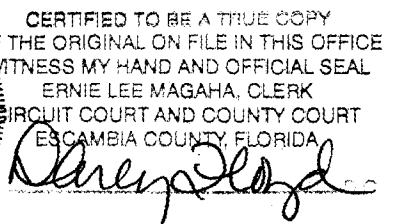 CERTIFIED TO BE A TRUE COPY
THE ORIGINAL ON FILE IN THIS OFFICE
ITNESS MY HAND AND OFFICIAL SEAL
ERNIE LEE MAGAHA, CLERK
IRCUIT COURT AND COUNTY COURT
ESCAMBIA COUNTY, FLORIDA
Floyd